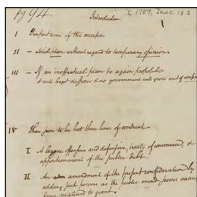 Introduction
I Importance of the occasion
II — Solid plan without regard to temporary opinion.
III — If an ineffectual plan be again proposed it will beget despair & no government will grow out of
IV There seem to be but three lines of conduct.
I. A league offensive and defensive, treaty of commerce, & apportionment of the public debt.
II An amendment of the present confederation by adding such powers as the public mind seems